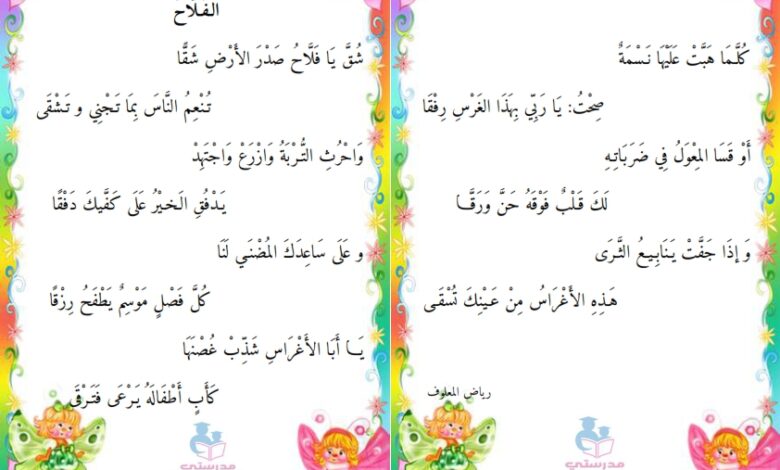 الفَلاَّحُ
شُقَّ يَا فَلَّاحُ صَدْرَ الأَرْضِ شَقًّا
تُنْعِمُ النَّاسَ بِمَا تَجْنِي و تَشْقَى
وَاحْرُثِ التُّرْبَةَ وَازْرَعْ وَاجْتَهِدْ
يَدْفُقِ الـخيْرُ عَلَى كَفَّيكَ دَفْقًا
و عَلَى سَاعِدَكَ المُضْنَي لَنَا
كُلَّ فَصْلٍ مَوْسِمٌ يَطْفَحُ رِزْقًا
يَا أَبَا الأَغْرَاسِ شَذِّبْ غُصْنَهَا
كَأَبٍ أَطْفَالَهُ يَرْعَى فَتَرْقَى
مدرستي
كُلَّمَا هَبَّتْ عَلَيْهَا نَسْمَةٌ
صِحْتُ: يَا رَبِّي بِهَذَا الغَرْسِ رِفْقَا
أَوْ قَسَا المِعْوَلُ فِي ضَرَبَاتِهِ
لَكَ قَلْبٌ فَوْقَهُ حَنَّ وَرَقَّا
وَ إذَا جَفَّتْ يَنَابِيعُ الثَّرَى
هَذِهِ الأَغْرَاسُ مِنْ عَيْنِكَ تُسْقَى
رياض المعلوف
مدرستي